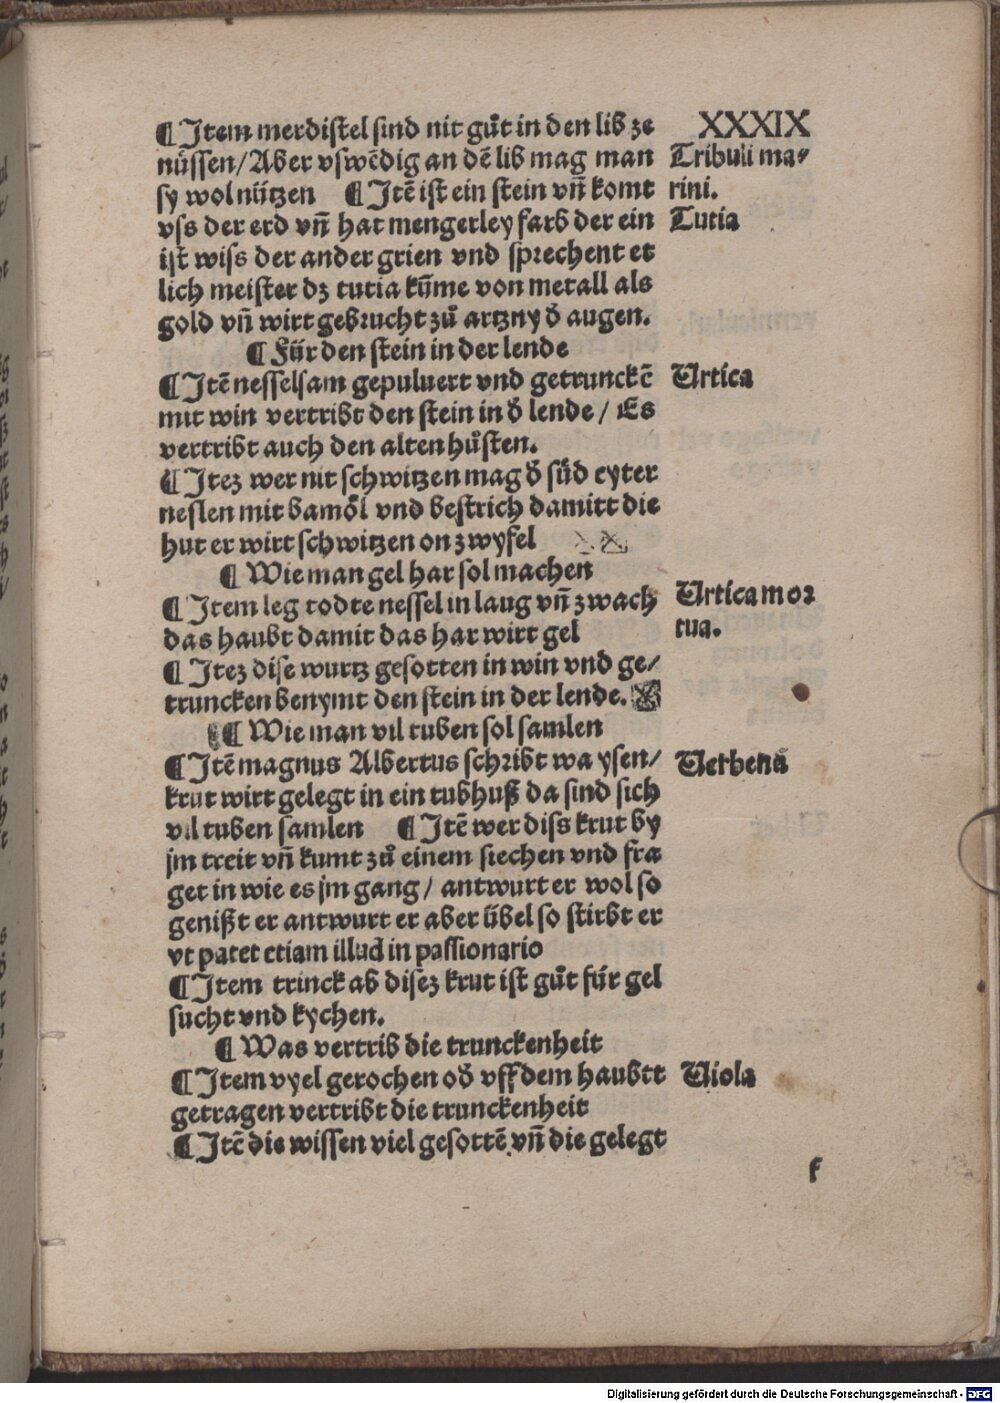 XXXIX
¶ Item merdistel sind nit gůt in den lib ze
nüssen/Aber vswēdig an dē lib mag man
sy wol nützen ¶ Itē ist ein stein vñ komt
vss der erd vñ hat mengerley farb der ein
ist wiss der ander grien vnd sprechent et
lich meister dz tutia kūme von metall als
gold vñ wirt gebrucht zů artzny d̄ augen.
¶ Für den stein in der lende
¶ Itē nesselsam gepuluert vnd getrunckē
mit win vertribt den stein in d̄ lende / Es
vertribt auch den alten hůsten.
¶ Itez wer nit schwitzen mag d̄ süd eyter
neslen mit bamöl vnd bestrich damitt die
hut er wirt schwitzen on zwyfel
¶ Wie man gel har sol machen
¶ Item leg todte nessel in laug vñ zwach
das haubt damit das har wirt gel
¶ Itez dise wurtz gesotten in win vnd ge/
truncken benymt den stein in der lende.
¶ Wie man vil tuben sol samlen
¶ Itē magnus Albertus schribt wa ysen/
krut wirt gelegt in ein tubhuß da sind sich
vil tuben samlen ¶ Itē wer diss krut by
jm treit vñ kumt zů einem siechen vnd fra
get in wie es jm gang / antwurt er wol so
genißt er antwurt er aber übel so stirbt er
vt patet etiam illud in passionario
¶ Item trinck ab disez krut ist gůt für gel
sucht vnd kychen.
¶ Was vertrib die trunckenheit
¶ Item vyel gerochen od̄ vff dem haubtt
getragen vertribt die trunckenheit
¶ Itē die wissen viel gesottē vñ die gelegt
Tribuli ma/
rini.
Tutia
Urtica
Urtica mor
tua.
Uerbena
Uiola
f
Digitalisierung gefördert durch die Deutsche Forschungsgemeinschaft - DFG